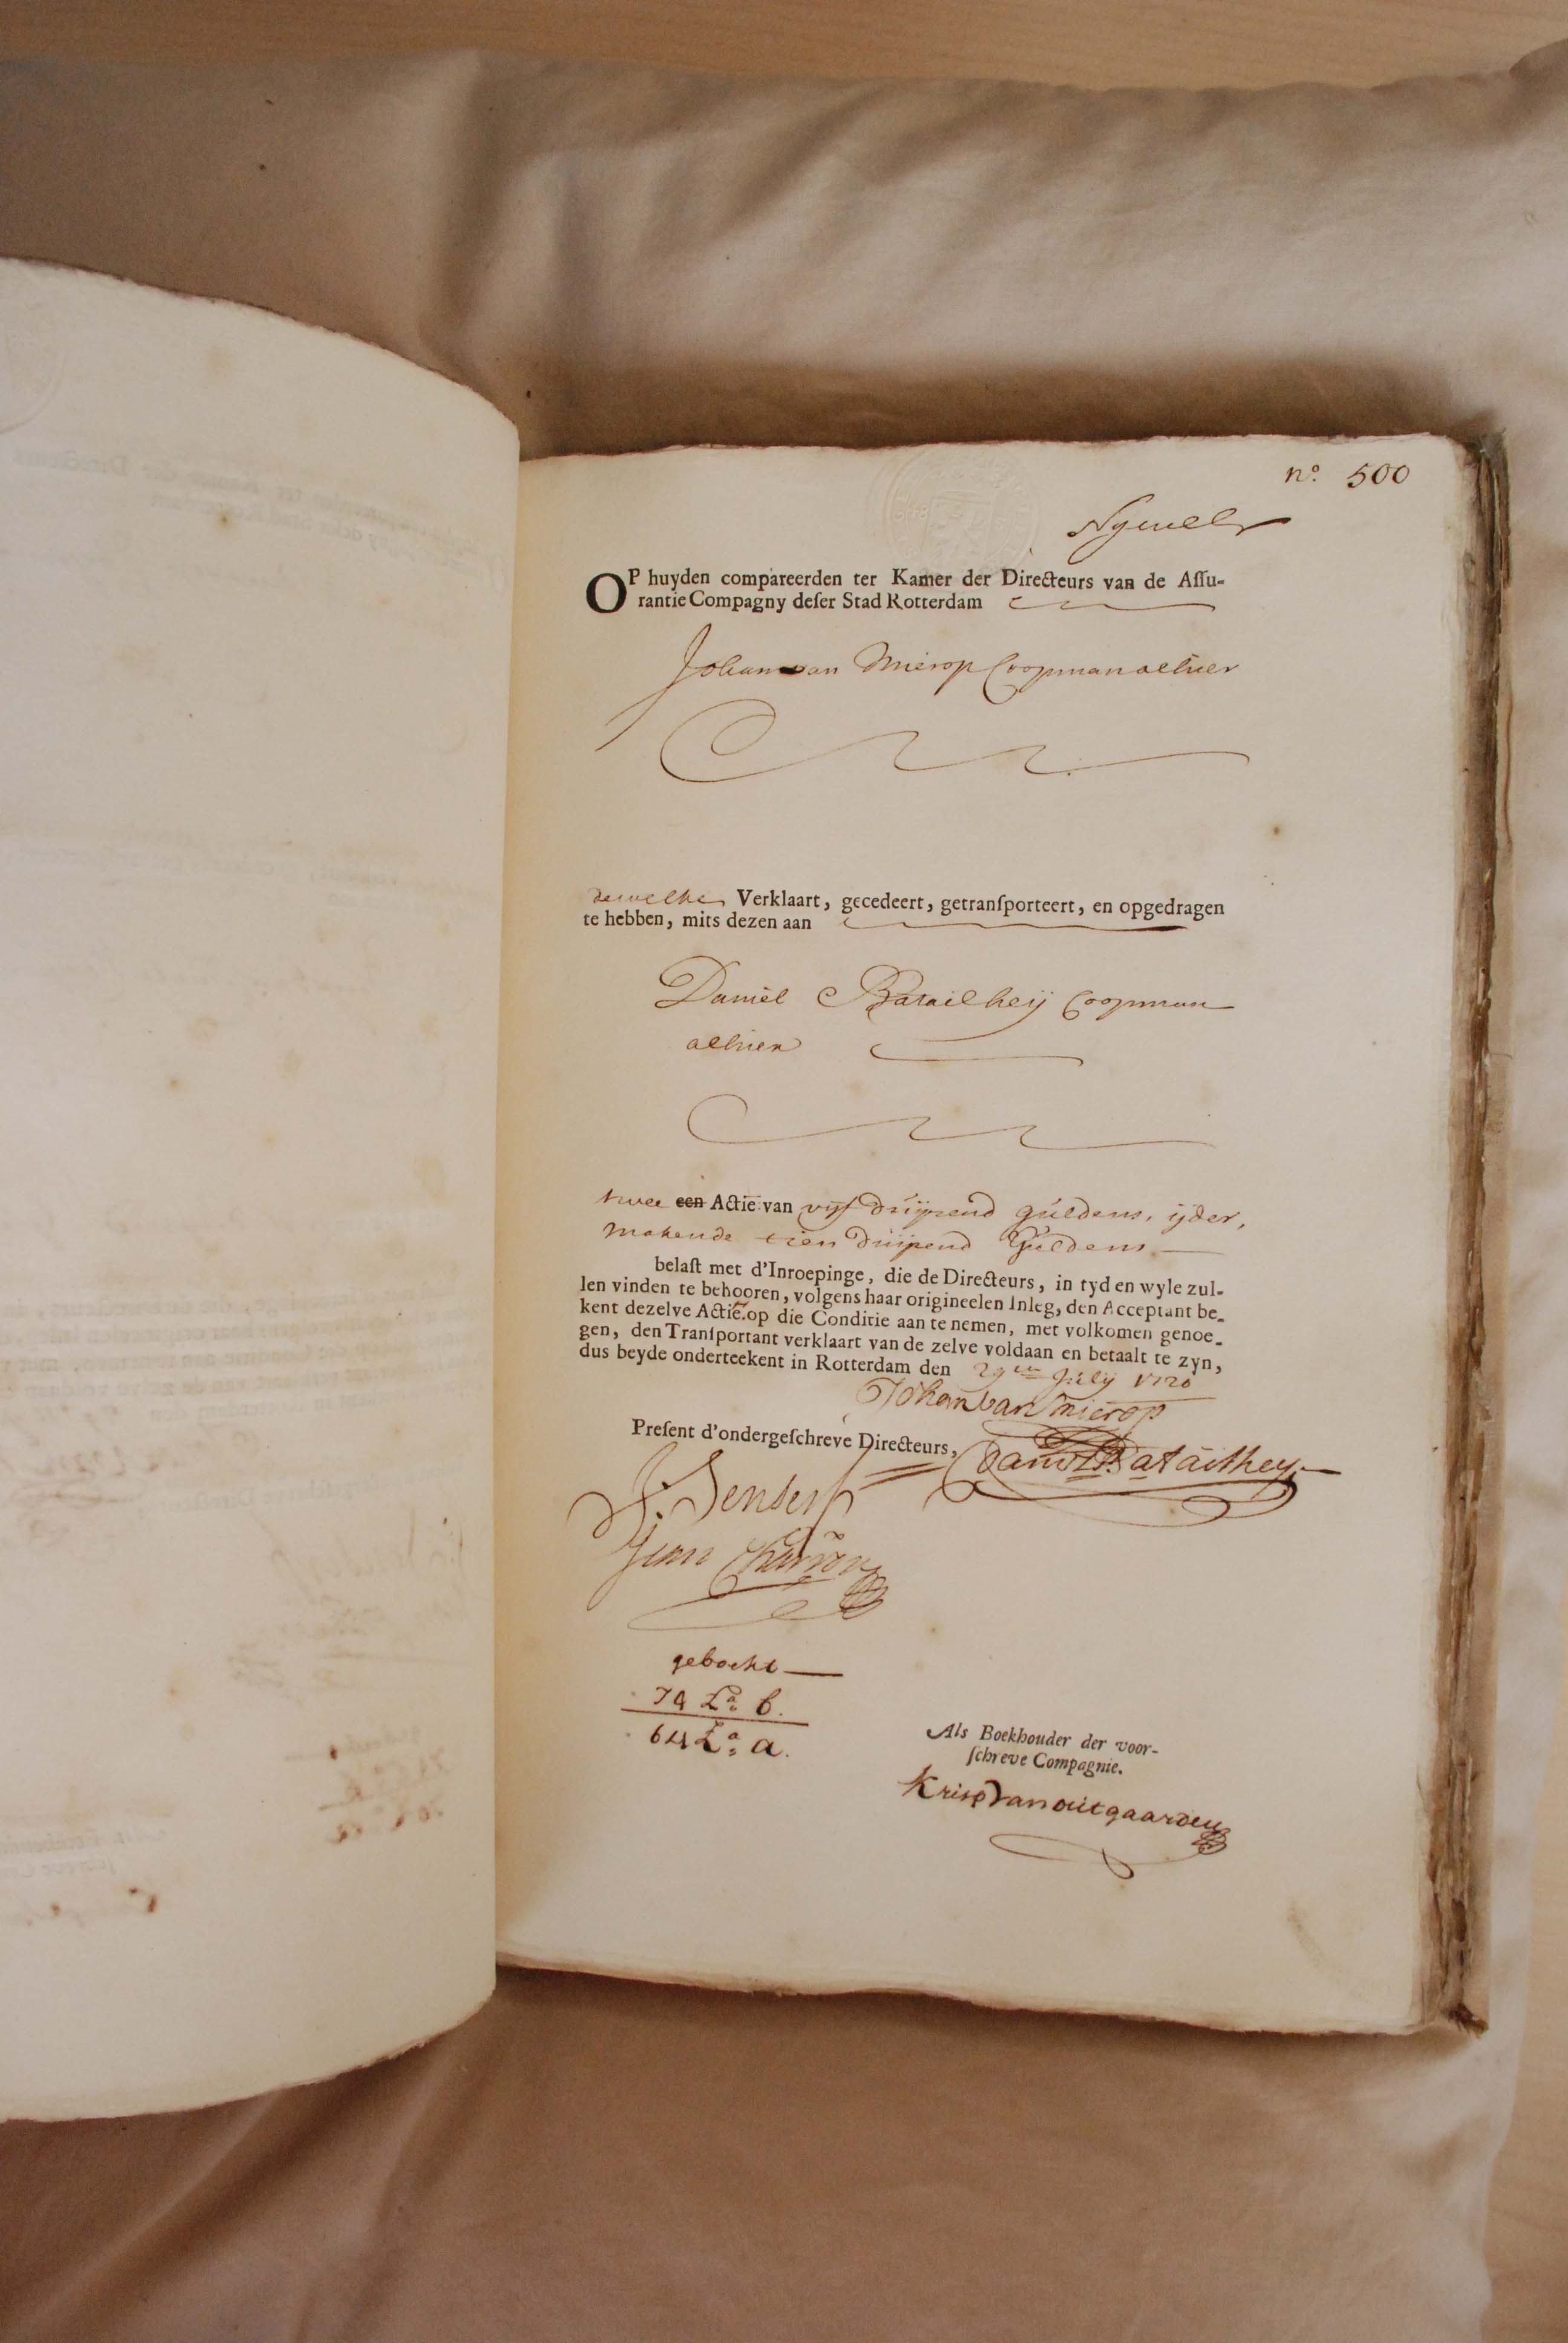 nº 500
OP huyden compareerden ter Kamer der Directeurs van de Aſſu-
rantie Compagny deſer Stad Rotterdam
Johan van Mierop Coopman alhier
dewelke Verklaart, gecedeert, getranſporteert, en opgedragen
te hebben, mits dezen aan
Daniel Batailheij Coopman
alhier
twee een Actie van vijf duijsend guldens, ijder,
makende tien duijsend Guldens
belaſt met d'Inroepinge, die de Directeurs, in tyd en wyle zul-
len vinden te behooren, volgens haar origineelen Inleg, den Acceptant be-
kent dezelve Actie op die Conditie aan te nemen, met volkomen genoe-
gen, den Tranſportant verklaart van de zelve voldaan en betaalt te zyn,
dus beyde onderteekent in Rotterdam den 29en Julij 1720
Johan van Mierop
Preſent d'ondergeſchreve Directeurs,
Daniel Batailhey
J. Senserf
Jean Charron
geboekt
74 La b.
64 La a.
Als Boekhouder der voor-
ſchreve Compagnie.
Krisp van outgaarden